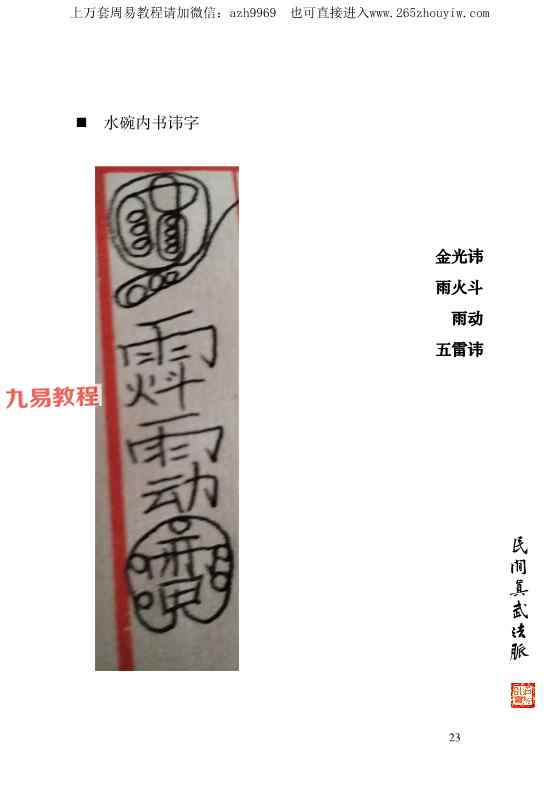 上万套周易教程请加微信：azh9969　也可直接进入www.265zhouyiw.com
■ 水碗内书讳字
金光讳
雨火斗
雨动
五雷讳
九易教程
雨
火斗
雨
动
雷
民间真武法脉
23